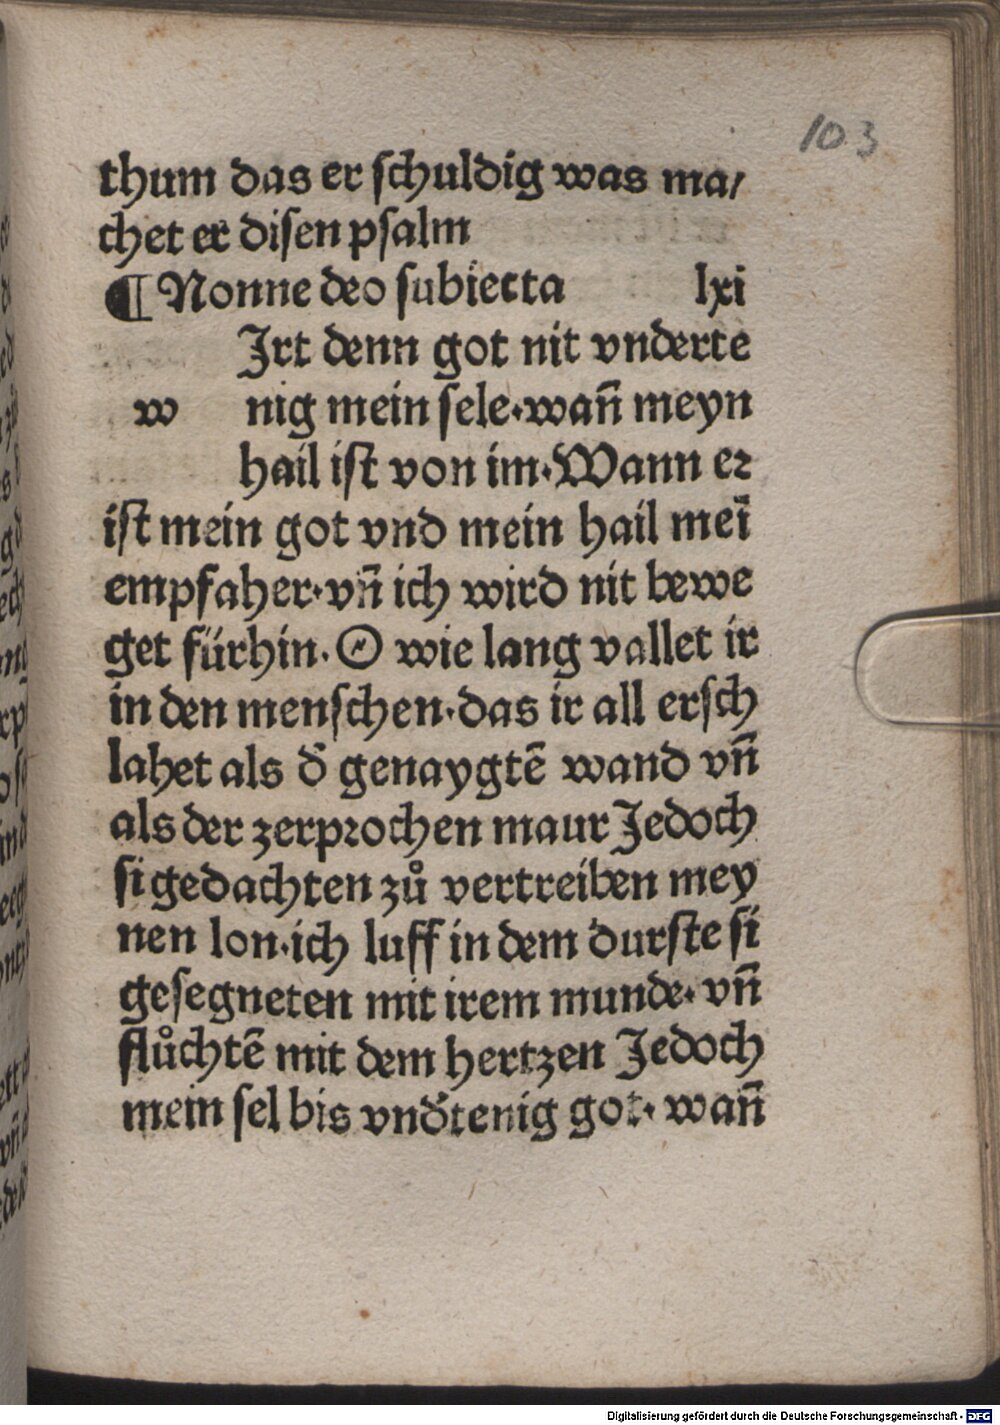 103
thum das er schuldig was ma/
chet er disen psalm
¶ Nonne deo subiecta lxi
Jrt denn got nit vnderte
w nig mein sele·wañ meyn
hail ist von im·Wann er
ist mein got vnd mein hail meī
empfaher·vñ ich wird nit bewe
get fürhin. O wie lang vallet ir
in den menschen·das ir all ersch
lahet als d̄ genaygtē wand vñ
als der zerprochen maur Jedoch
si gedachten zů vertreiben mey
nen lon·ich luff in dem durste si
gesegneten mit irem munde·vñ
flůchtē mit dem hertzen Jedoch
mein sel bis vnd̄tenig got·wañ
Digitalisierung gefördert durch die Deutsche Forschungsgemeinschaft - DFG